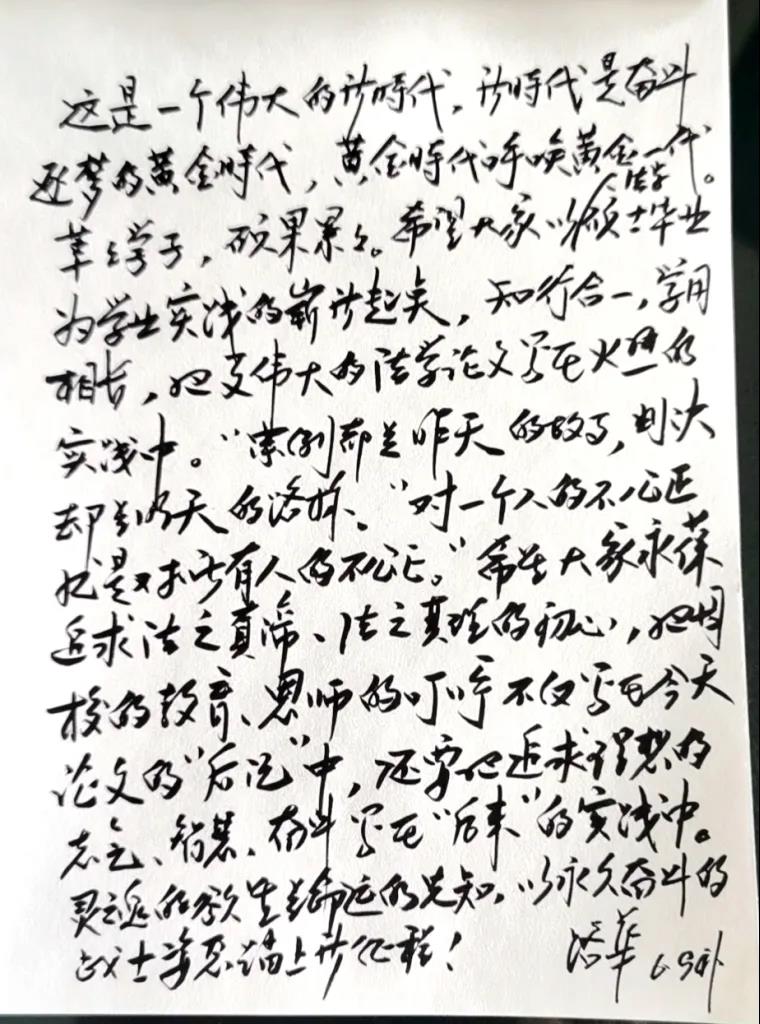 这是一个伟大的新時代，新時代是奋斗
逐梦的黄金時代，黄金時代呼唤黄金一代。
莘莘学子，硕果累累。希望大家以法学硕士毕业
为学业实践的崭新起点，知行合一，学用
相长，把更伟大的法学论文写在火热的
实践中。“案例都是昨天的故事，判决
却是明天的洛杉。“对一个人的不公正
就是对所有人的不公正。”希望大家永葆
追求法之真谛、法之真理的初心，把母
校的教育、恩师的叮咛不仅写在今天
论文的“后记”中，还要把追求理想的
志气、智慧、奋斗写在“后来”的实践中。
灵魂的歌生命运的先知，以永久奋斗的
战士姿态踏上新征程！
浩华 6.9补